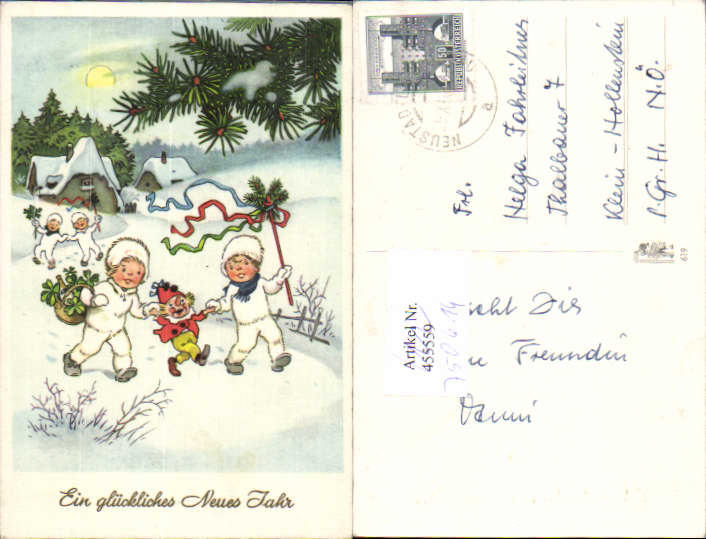 Ein glückliches Neues Jahr
50
REPUBLIK ÖSTERREICH
NEUSTADT
Frl.
Helga Fahrleitner
Thalbauer 7
Klein - Hollenstein
P. Gr. H. N.Ö.
619
Artikel Nr.
455559
Dir
Freundin